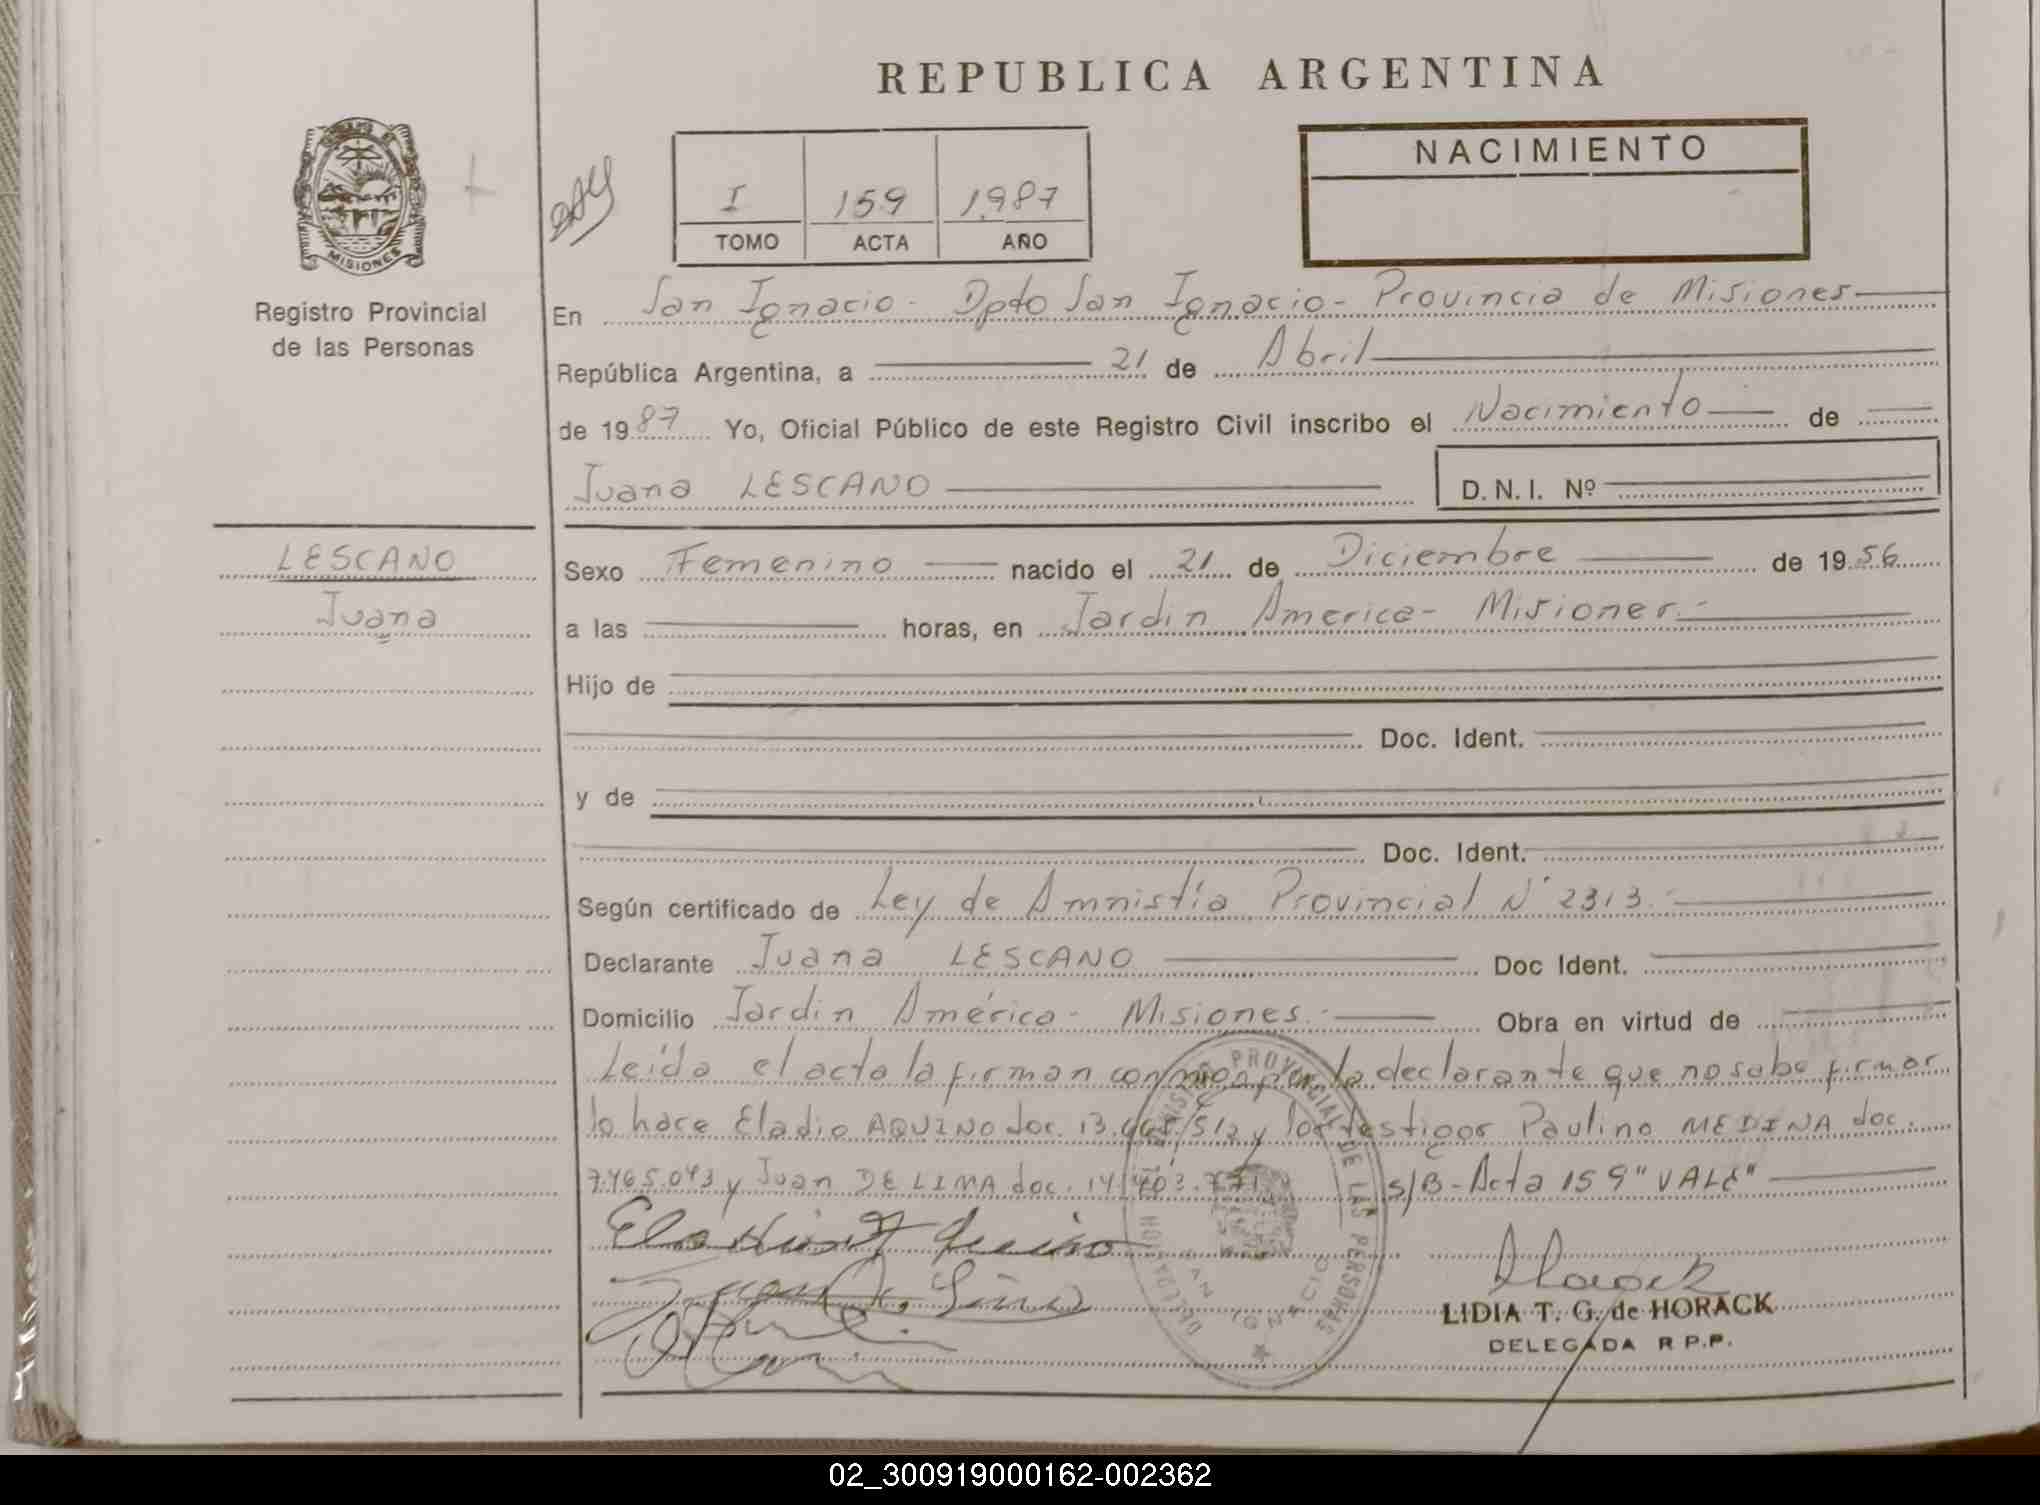 REPUBLICA ARGENTINA
NACIMIENTO
I 159 1987
TOMO ACTA AÑO
MISIONES
Registro Provincial
de las Personas
En San Ignacio - Dpto San Ignacio - Provincia de Misiones
República Argentina, a 21 de Abril
de 1987 Yo, Oficial Público de este Registro Civil inscribo el Nacimiento de
Juana LESCANO D.N.I. Nº
LESCANO
Juana
Sexo Femenino nacido el 21 de Diciembre de 1956
a las horas, en Jardin America - Misiones.-
Hijo de
Doc. Ident.
y de
Doc. Ident.
Según certificado de Ley de Amnistía Provincial Nº 2313.-
Declarante Juana LESCANO Doc Ident.
Domicilio Jardin América - Misiones.- Obra en virtud de
Leída el acta la firman conmigo por la declarante que no sabe firmar
lo hace Eladio AQUINO doc. 13. y los testigos Paulino MEDINA doc.
7.465.043 y Juan DE LIMA doc. 14.403. s/B - Acta 159 "VALE"
REGISTRO PROVINCIAL DE LAS PERSONAS
DELEGACION
SAN IGNACIO
LIDIA T. G. de HORACK
DELEGADA R P.P.
02_300919000162-002362